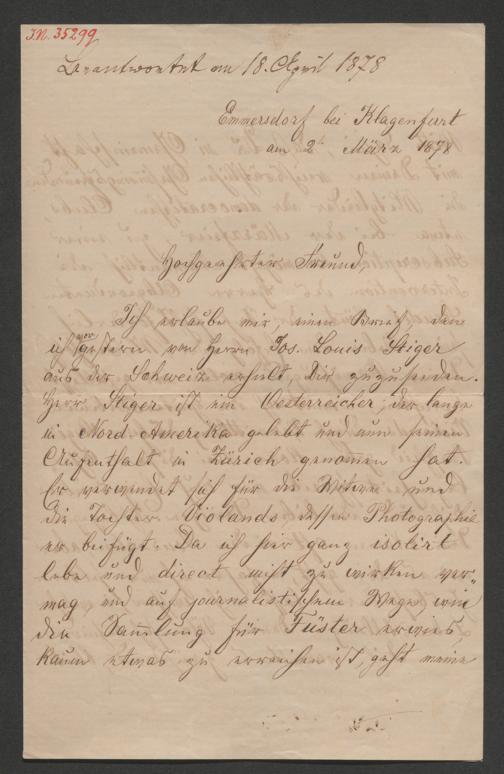 I.N. 35299
Beantwortet am 18. April 1878
Emmersdorf bei Klagenfurt
am 2. März 1878
Hochgeehrter Freund,
Ich erlaube mir, einen Brief, den
ich vorgestern von Herrn Jos. Louis Stiger
aus der Schweiz erhielt, Dir zuzusenden.
Herr Stiger ist ein Oesterreicher, der lange
in Nord-Amerika gelebt und nun seinen
Aufenthalt in Zürich genommen hat.
Er verwendet sich für die Witwe und
die Tochter Violands dessen Photographie
er beifügt. Da ich hier ganz isolirt
lebe und direct nicht zu wirken ver-
mag und auf journalistischem Wege wie
die Sammlung für Füster erwies
kaum etwas zu erreichen ist, geht meine